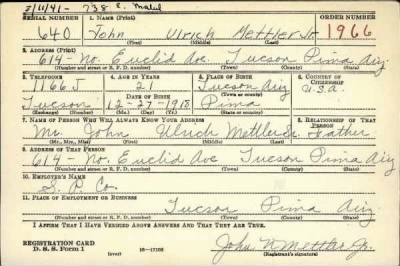 2/11/41- 738 E. Mabel
SERIAL NUMBER 1. NAME (Print) ORDER NUMBER
640 John Ulrich Mettler Jr. 1966
(First) (Middle) (Last)
2. ADDRESS (Print)
614- No. Euclid Ave. Tucson Pima Ariz
(Number and street or R. F. D. number) (Town) (County) (State)
3. TELEPHONE 4. AGE IN YEARS 5. PLACE OF BIRTH 6. COUNTRY OF CITIZENSHIP
1166 J 21 Tucson Ariz U.S.A.
DATE OF BIRTH (Town or county)
Tucson 12-27-1918 Pima
(Exchange) (Number) (Mo.) (Day) (Yr.) (State or country)
7. NAME OF PERSON WHO WILL ALWAYS KNOW YOUR ADDRESS 8. RELATIONSHIP OF THAT PERSON
Mr. John Ulrich Mettler Sr. Father
(Mr., Mrs., Miss) (First) (Middle) (Last)
9. ADDRESS OF THAT PERSON
614- No. Euclid Ave Tucson Pima Ariz
(Number and street or R. F. D. number) (Town) (County) (State)
10. EMPLOYER'S NAME
S. P. Co.
11. PLACE OF EMPLOYMENT OR BUSINESS
Tucson Pima Ariz.
(Number and street or R. F. D. number) (Town) (County) (State)
I AFFIRM THAT I HAVE VERIFIED ABOVE ANSWERS AND THAT THEY ARE TRUE.
REGISTRATION CARD
D. S. S. Form 1 (over) 16-17105 John U Mettler Jr.
(Registrant's signature)